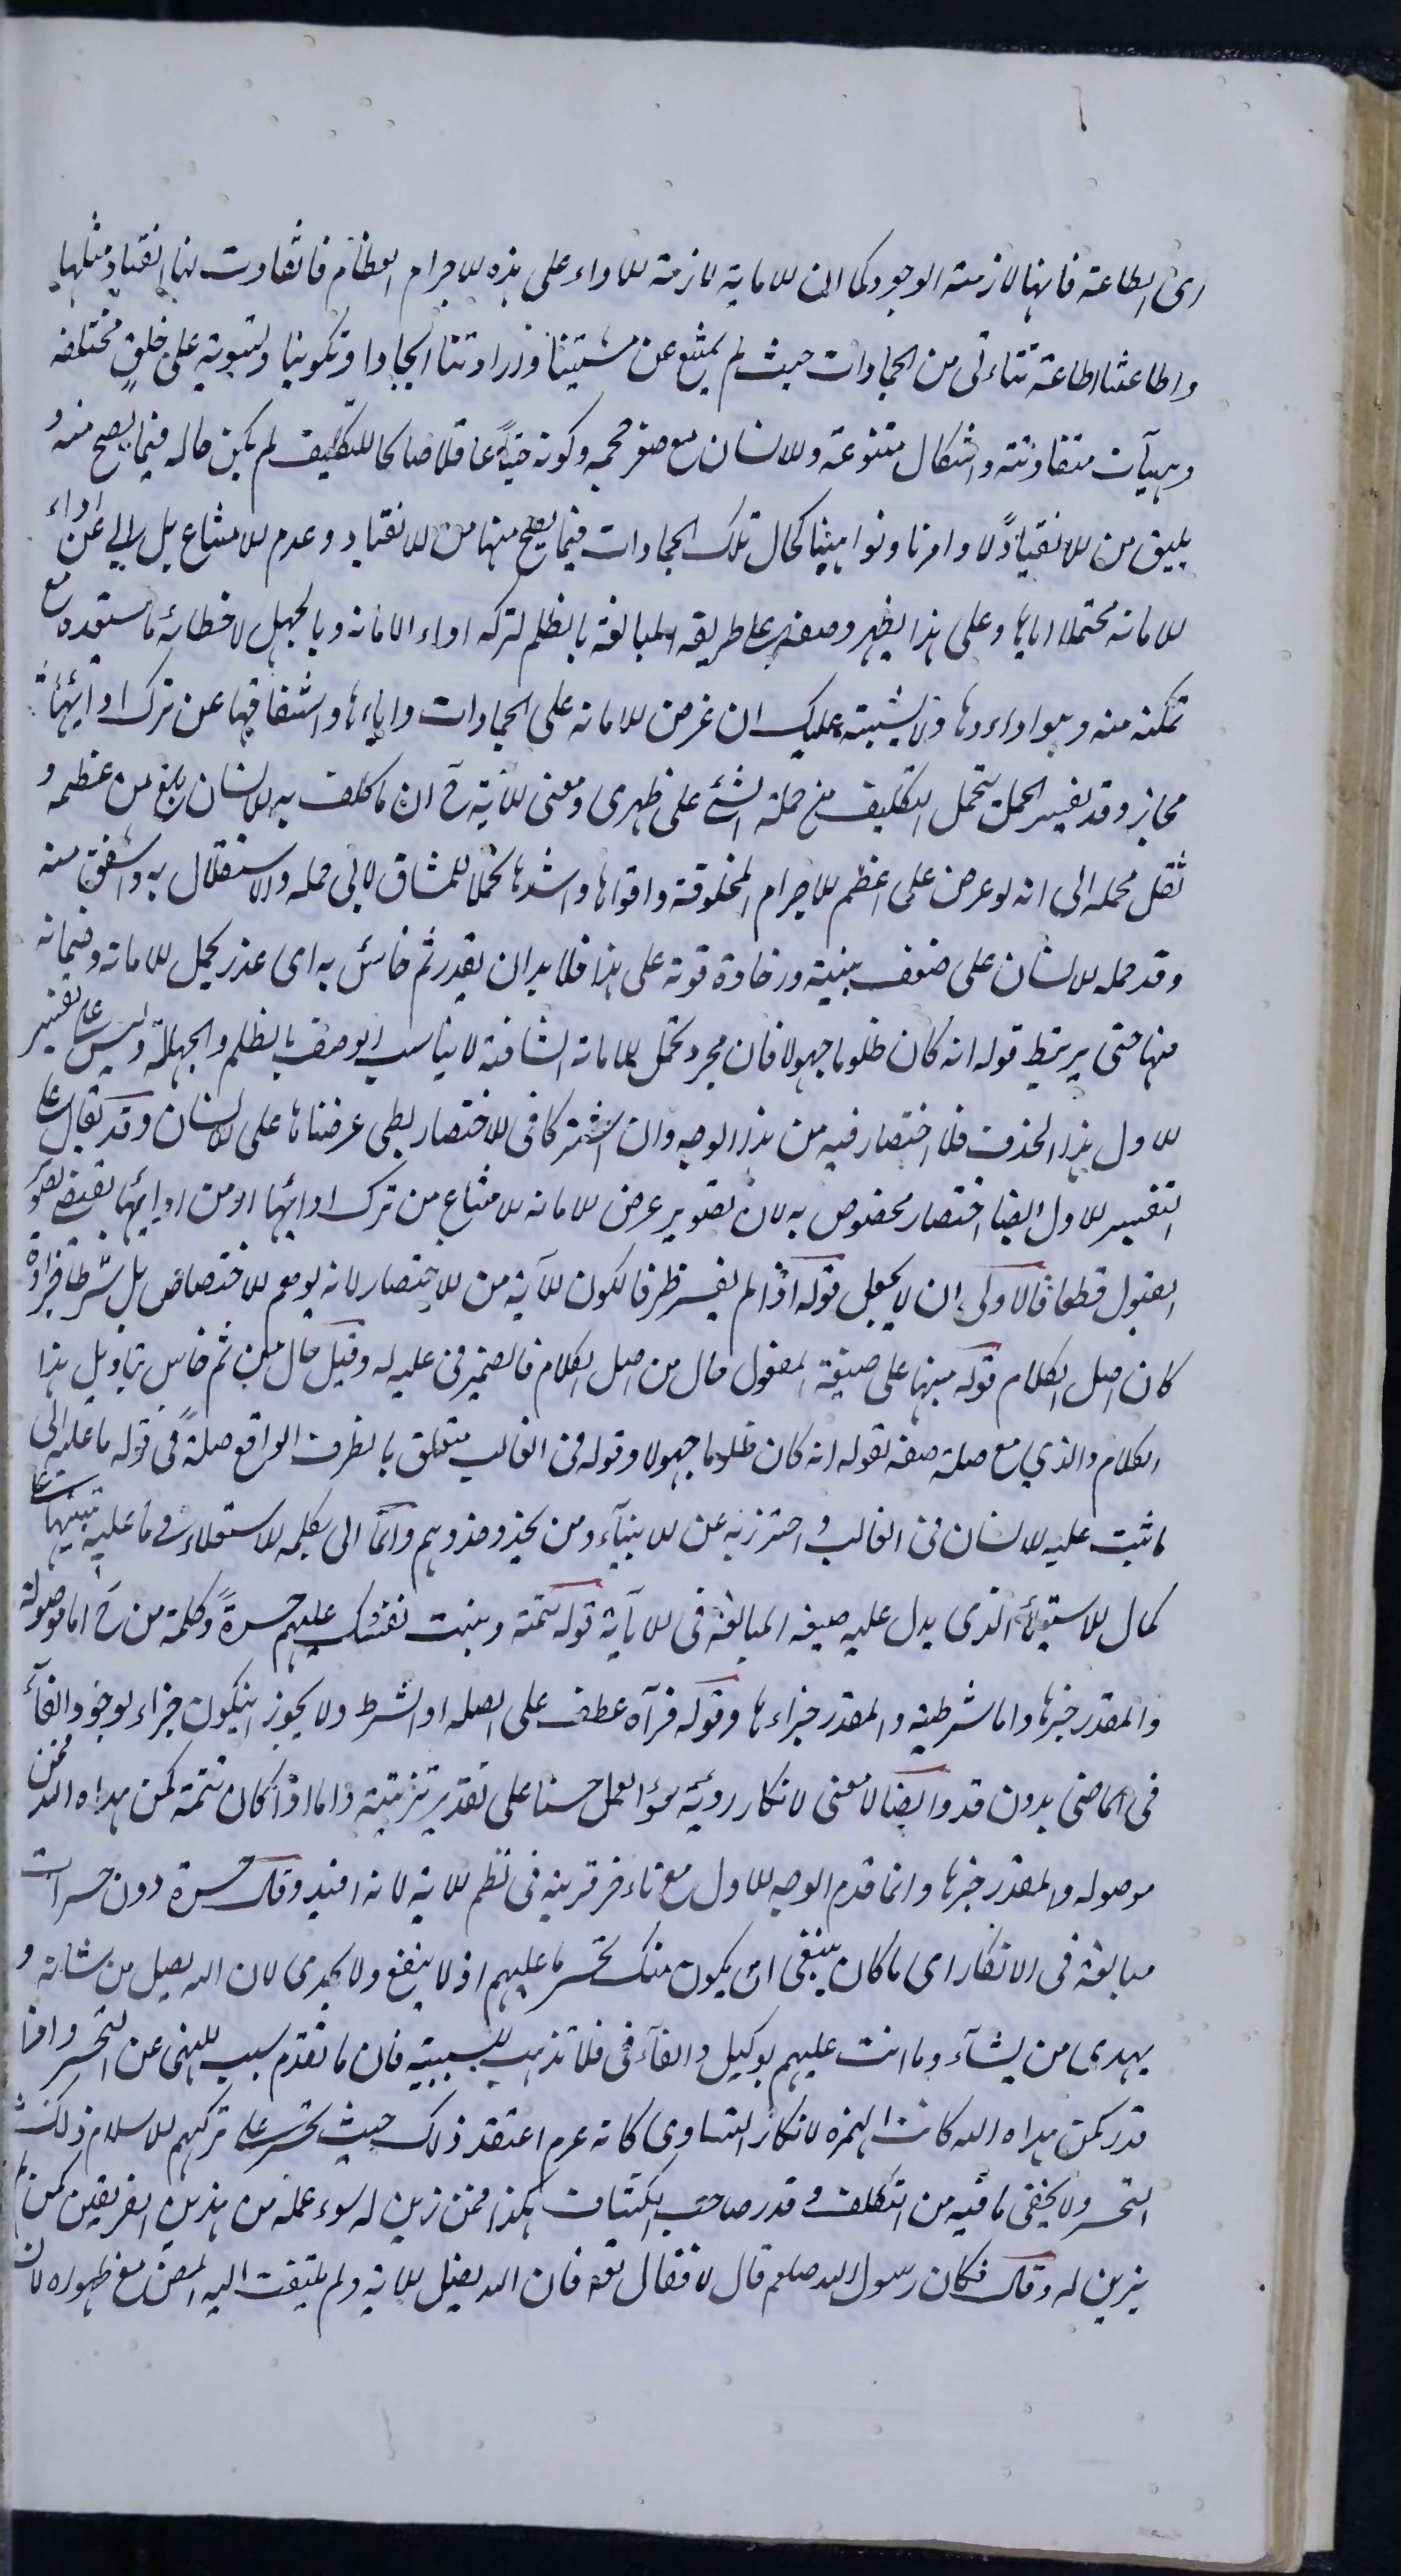 اى الطاعة فانها لازمة الوجود كما ان الامانة لازمة الاداء على هذه الاجرام العظام فانقادت لنا انقياد مثلها
واطاعتنا اطاعة تتأتى من الجمادات حيث لم يمتنع عن مشيتنا وارادتنا ايجادا وتكوينا وتسوية على خلق مختلفه
وهيآت متفاوتة واشكال متنوعة والانسان مع صغر حجمه وكونه حيّاً عاقلا صالحا للتكليف لم يكن حاله فيما يصح منه و
يليق من الانقياد لاوامرنا ونواهينا كحال تلك الجمادات فيما يصح منها من الانقياد وعدم الامتناع بل ابى عن اداء
الامانة محتملا اياها وعلى هذا يظهر وصفه على طريقه المبالغة بالظلم لتركه اداء الامانة وبالجهل لاخطائه ما يستعده مع
تمكنه منه وهو اداءوها ولا يشتبه عليك ان عرض الامانه على الجمادات واباءها واشفاقها عن ترك ادائها
مجاز وقد يفسر الحمل بتحمل التكليف من حملة الشئ على ظهرى ومعنى الآية ح ان ما كلف به الانسان بلغ من عظمه و
ثقل محمله الى انه لو عرض على اعظم الاجرام المخلوقة واقواها واشدها تحملا للمشاق لابى حمله والاستقلال به واشفق منه
وقد حمله الانسان على ضعف بنيته ورخاوة قوته على هذا فلا بد ان يقدر ثم خاس به اى غدر بحمل الامانه وضمانه
منها حتى يرتبط قوله انه كان ظلوما جهولا فان مجرد تحمل الامانة الشاقة لا يناسب الوصف بالظلم والجهالة وليس على تفسير
الاول هذا الحذف فلا اختصار فيه من هذا الوجه وان اشتركا فى الاختصار بطى عرضناها على الانسان وقد يقال على
التفسير الاول ايضا اختصار مخصوص به لان تصوير عرض الامانه لامتناع من ترك ادائها او من ادائها يقتضى تصور
القبول قطعا فالاولى ان لا يجعل قوله اذا لم يفسر ظرفا لكون الآية من الاختصار لانه يوهم الاختصاص بل شرطا جزاؤه
كان اصل الكلام قوله منبها على صيغة المفعول حال من اصل الكلام فالضمير فى عليه له وقيل حال من ثم خاس بتاويل هذا
الكلام والذي مع صلته صفة لقوله انه كان ظلوما جهولا وقوله فى الغالب متعلق بالظرف الواقع صلةً فى قوله ما عليه اى
ما ثبت عليه الانسان فى الغالب واحترز به عن الانبياء ومن يحذو حذوهم وانما اتى بكلمه الاستعلاء فى ما عليه تنبيها على
كمال الاستيلاء الذى يدل عليه صيغه المبالغة فى الآية قوله كمن وهبت نفسك عليهم حسرةً وكلمة من ح اما موصولة
والمقدر خبرها واما شرطية والمقدر جزاءها وقوله فرآه عطف على الصله او الشرط ولا يجوز ان يكون جزاء لوجود الفآء
فى الماضى بدون قد وايضا لا معنى لانكار رؤية سوء العمل حسنا على تقدير تزيينه واما اذا كان تتمة كمن هداه الله فمن
موصوله والمقدر خبرها وانما قدم الوجه الاول مع تاءخر قرينه فى نظم الاية لانه افيد وقك حسرة دون حسرات
مبالغة فى الانكار اى ما كان ينبغى ان يكون منك تحسر ما عليهم اذ لا ينفع ولا يجدى لان الله يضل من يشاء و
يهدى من يشآء وما انت عليهم بوكيل والفآء فى فلا تذهب للسببية فان ما تقدم سبب للنهى عن التحسر واذا
قدر كمن هداه الله كانت الهمزه لانكار التساوى كانه عرم اعتقد ذلك حيث تحسر على تركهم الاسلام ذلك
التحسر ولا يخفى ما فيه من التكلف وقدر صاحب الكشاف هكذا فمن زين له سوء عمله من هذين الفريقين كمن لم
يزين له وقك فكان رسول الله صلعم قال لا فقال تعه فان الله يضل الاية ولم يلتفت اليه المص مع ظهوره لان